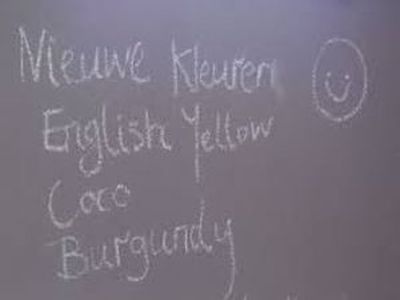 Nieuwe Kleuren
English Yellow
Coco
Burgundy